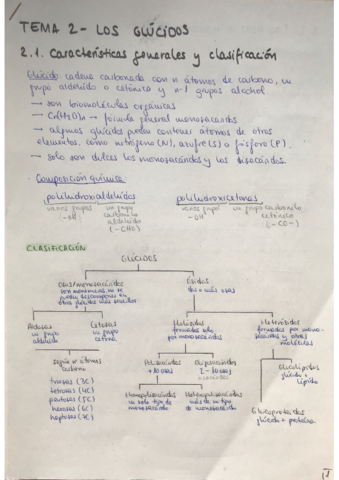 TEMA 2 - LOS GLÚCIDOS
2.1. Características generales y clasificación
Glúcido cadena carbonada con n átomos de carbono, un
grupo aldehído o cetónico y n-1 grupos alcohol.
→ son biomoléculas orgánicas
→ fórmula general monosacáridos
→ algunos glúcidos pueden contener átomos de otros
elementos, como nitrógeno (N), azufre (S) o fósforo (P).
→ solo son dulces los monosacáridos y los disacáridos.
· Composición química
polihidroxialdehídos polihidroxicetonas
varios grupos un grupo varios grupos un grupo carbonilo
(-OH) carbonilo -OH cetónico
aldehído (-CO-)
(-CHO)
CLASIFICACIÓN
GLÚCIDOS
Osas/monosacáridos Ósidos
son monómeros no se dos o más osas
pueden descomponer en
otros glúcidos más sencillos
Aldosas Cetosas
un grupo un grupo
aldehído cetona
Holósidos Heterósidos
formados solo formados por mono-
por monosacáridos sacáridos y otras
moléculas
según nº átomos
carbono
triosas (3C)
tetrosas (4C)
pentosas (5C)
hexosas (6C)
heptosas (7C)
Polisacáridos Oligosacáridos
+10 osas 2-10 osas
Homopolisacáridos Heteropolisacáridos
un solo tipo de más de un tipo
monosacárido de monosacárido
Glucolípidos
glúcido +
lípido
Glucoproteidos
glúcido + proteína